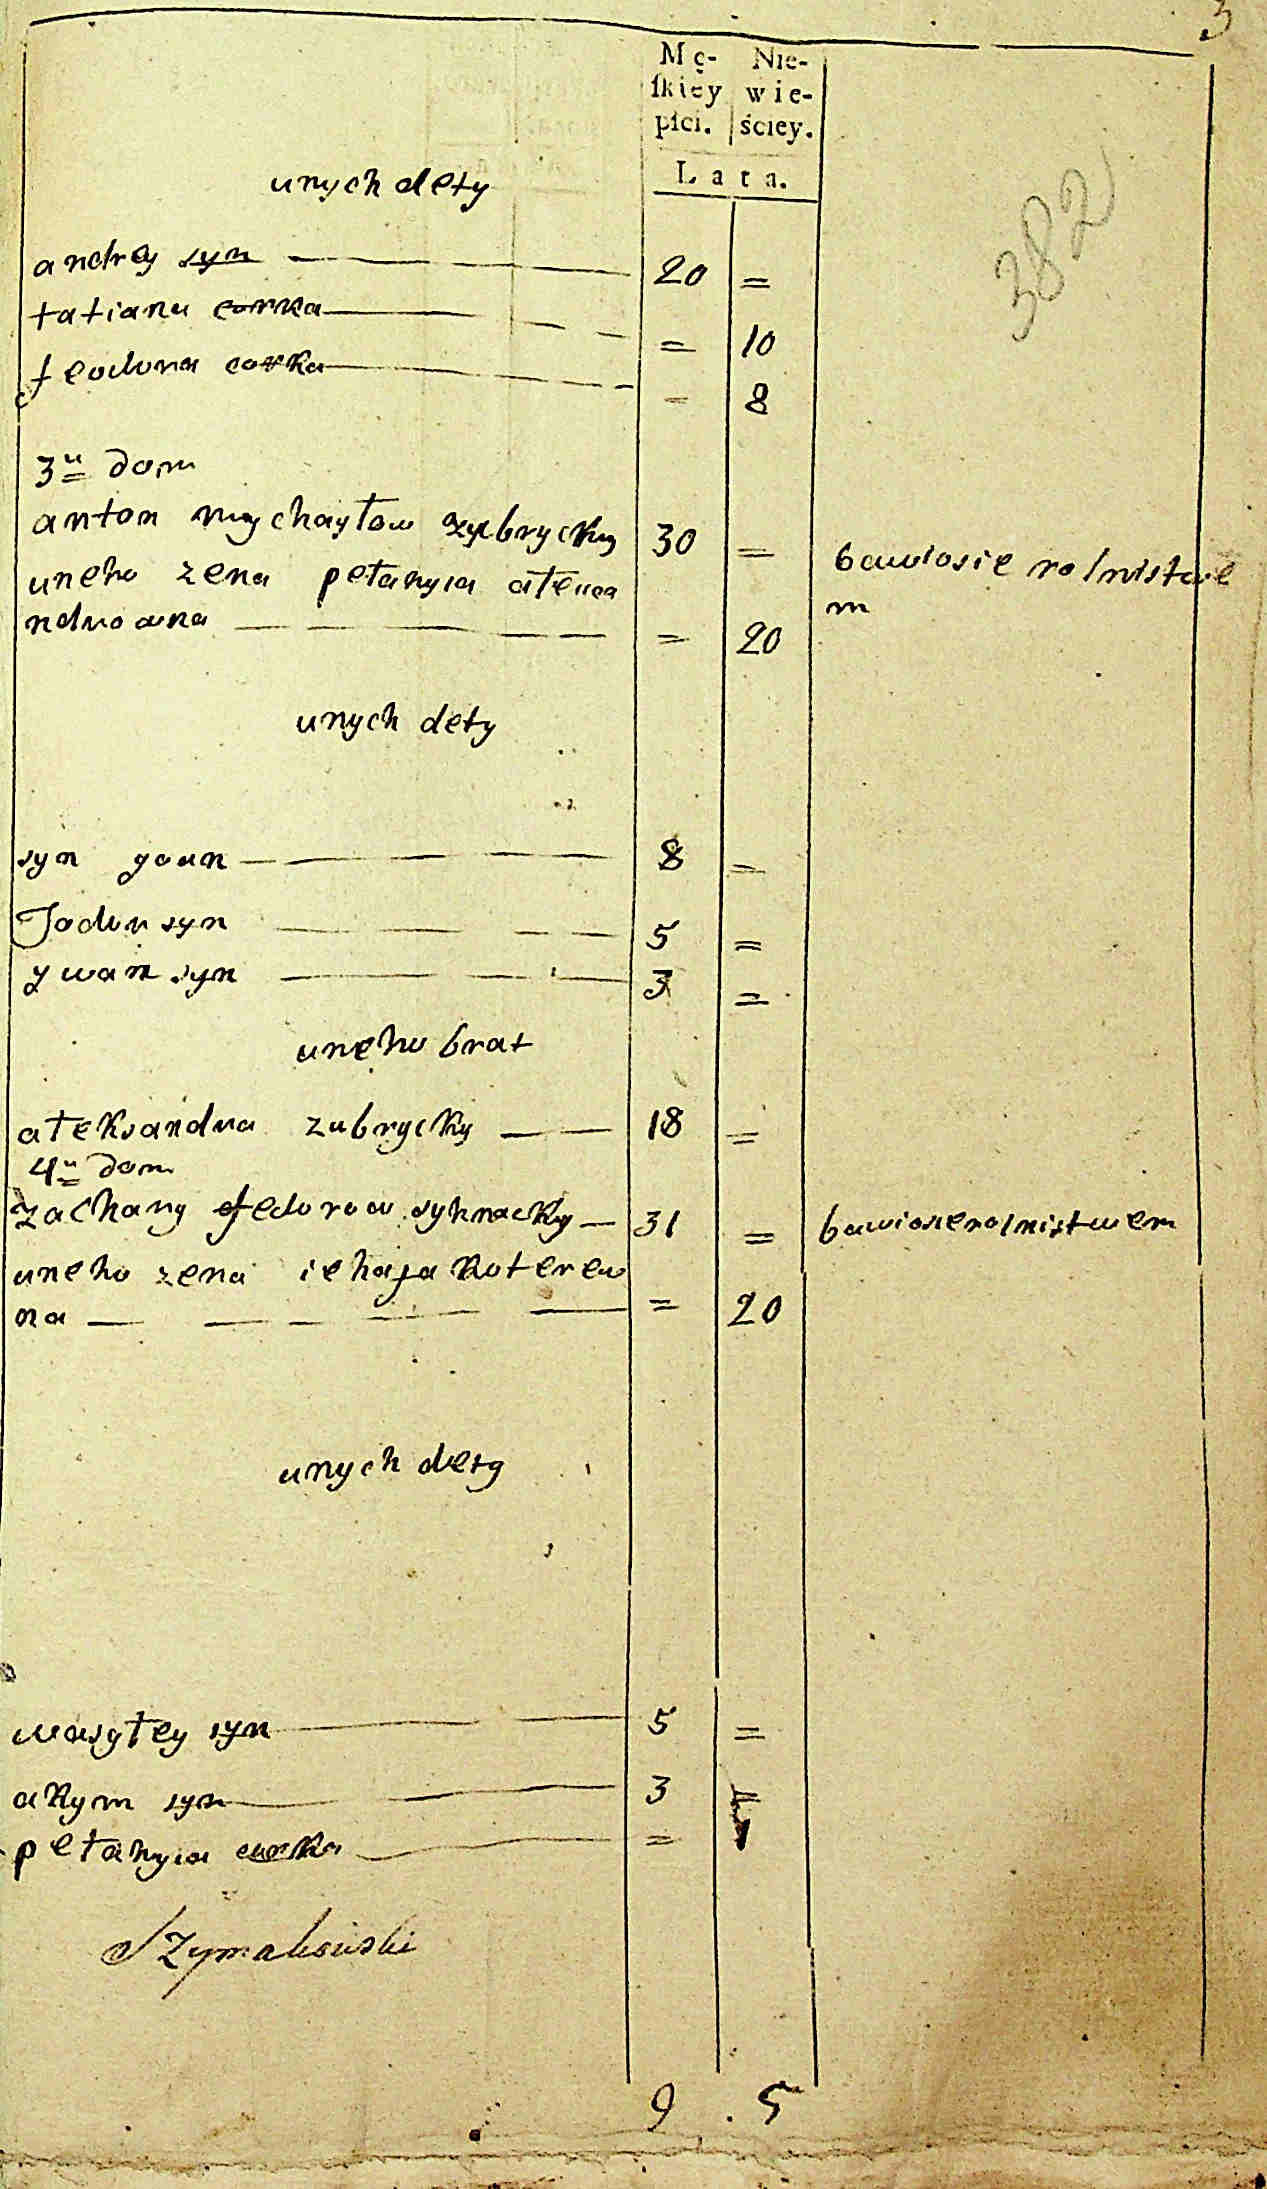 3
Mę- Nie-
ſkiey wie-
płci. ściey.
Lata.
382
unych dety
andrey syn 20 =
tatiana corka = 10
feodora corka = 8
3u dom
anton mychayłow zybrycky 30 = bawiosie rolnistwe
uneho zena pełahyia ałexa m
ndrowna = 20
unych dety
syn yoan 8 =
Jador syn 5 =
ywan syn 3 =
uneho brat
ałeksandra zubrycky 18 =
4u dom
zachary fedorow syhnacky 31 = bawiosierolnistwem
uneho zena iehapa koterew
na = 20
unych dety
wasyłey syn 5 =
akym syn 3 =
pełahyia curka = 1
9 . 5